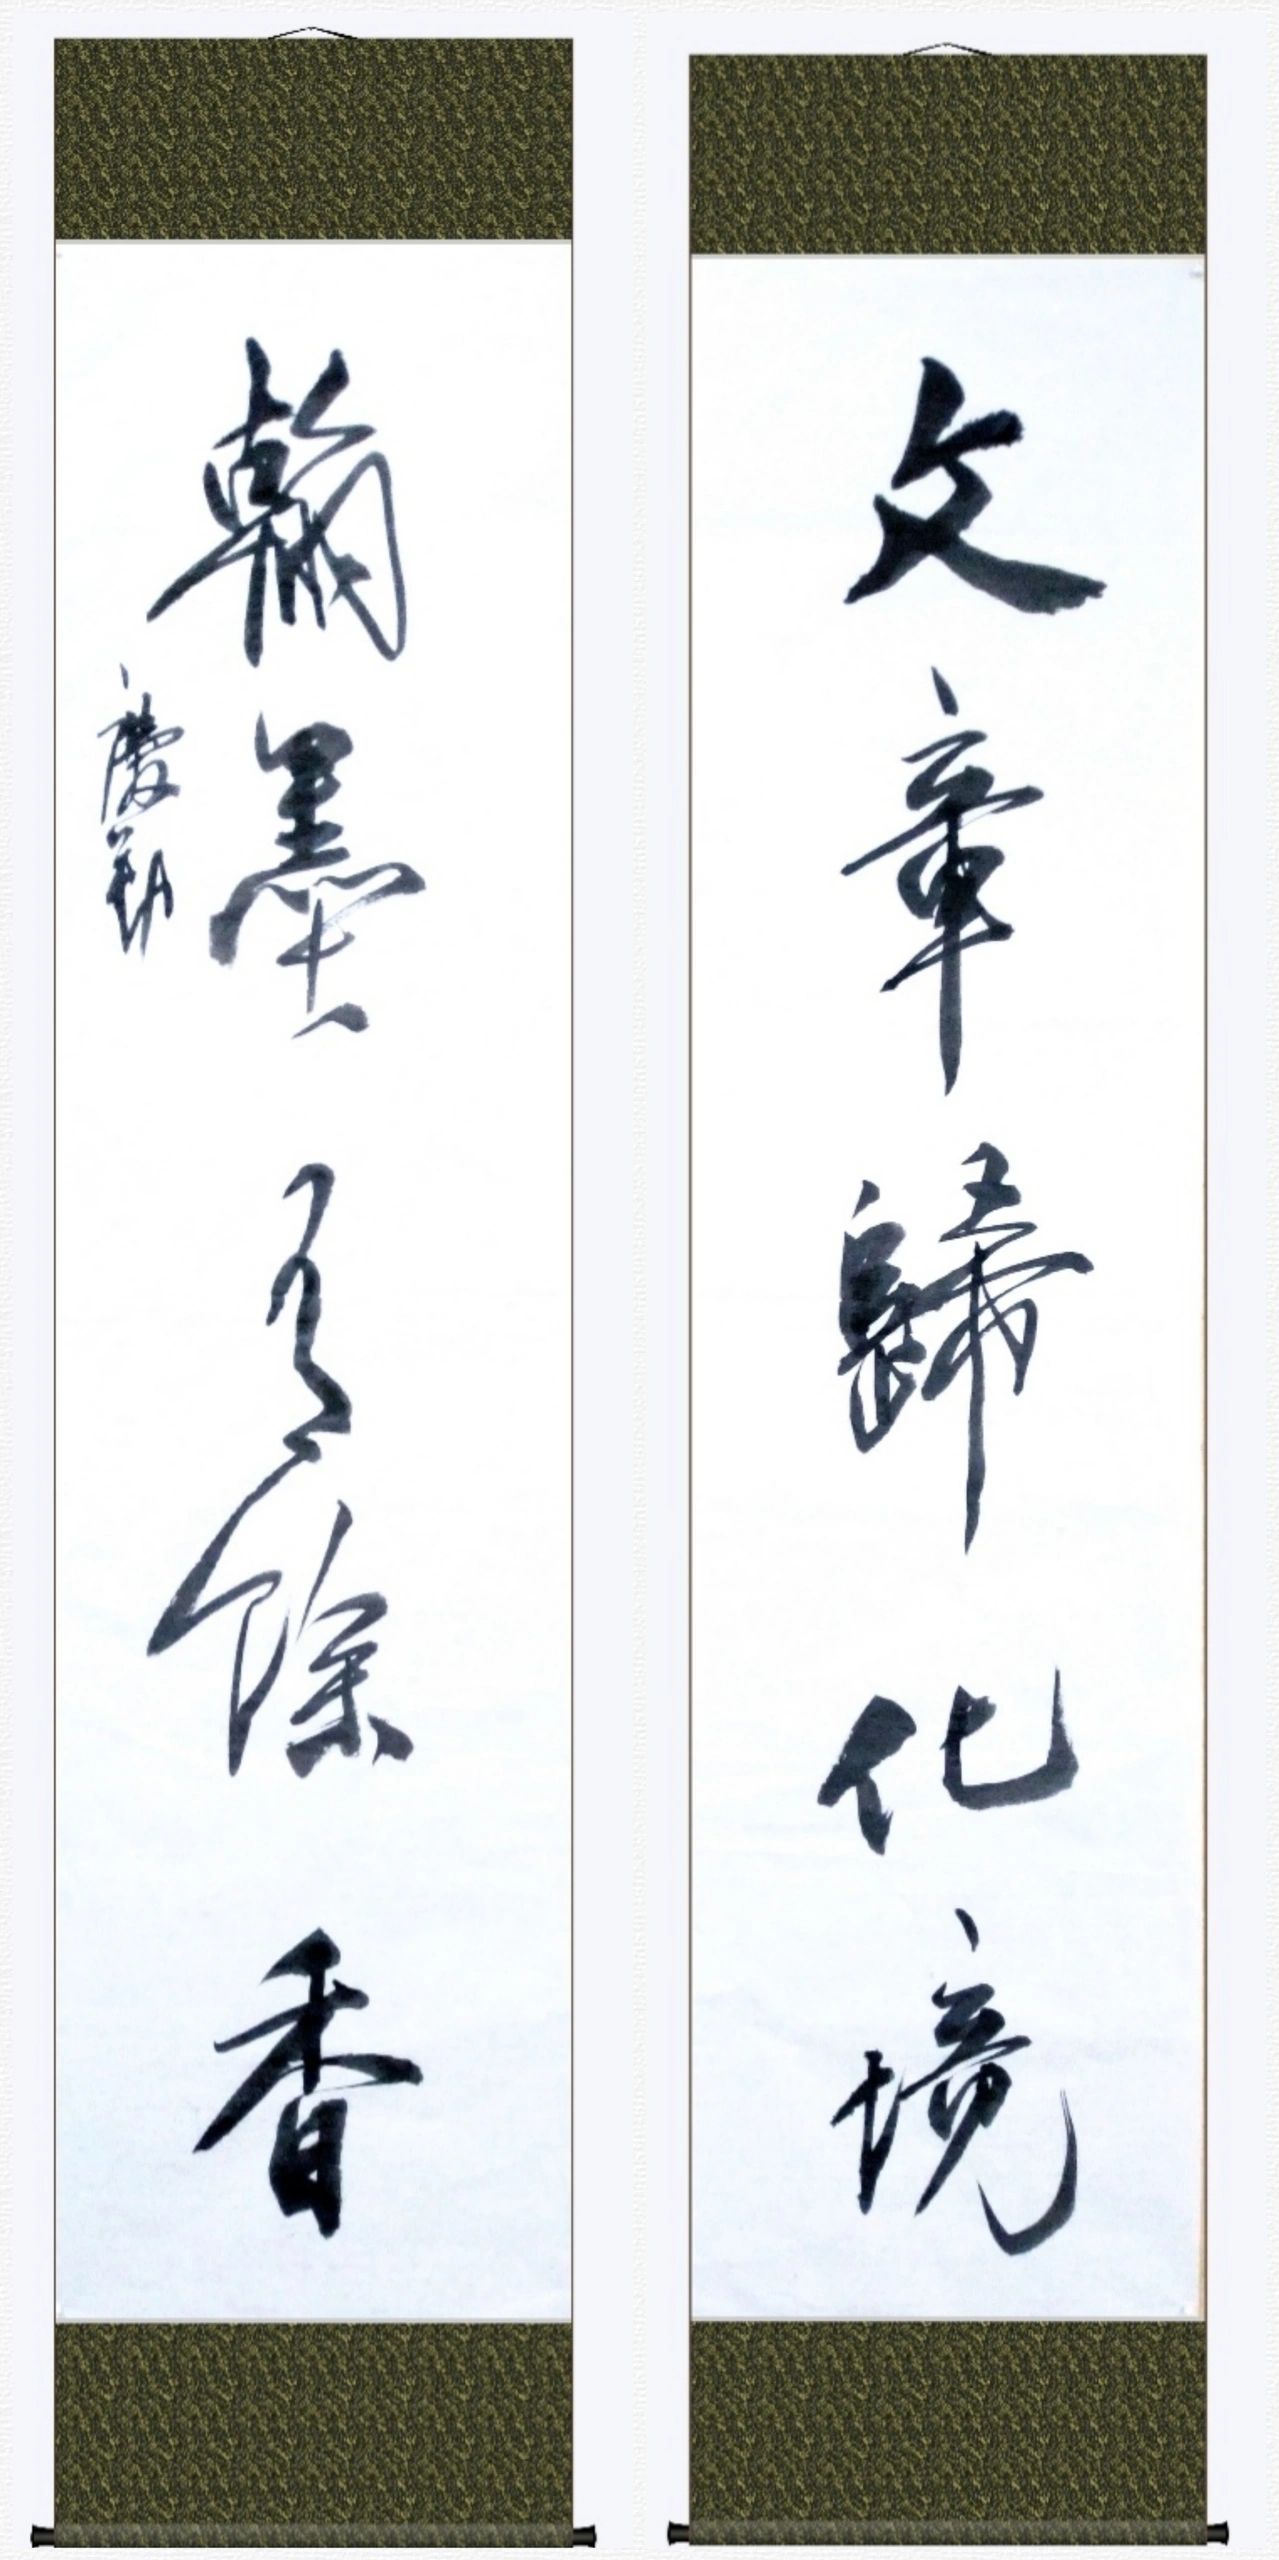 文章歸化境
翰墨有餘香
慶勤